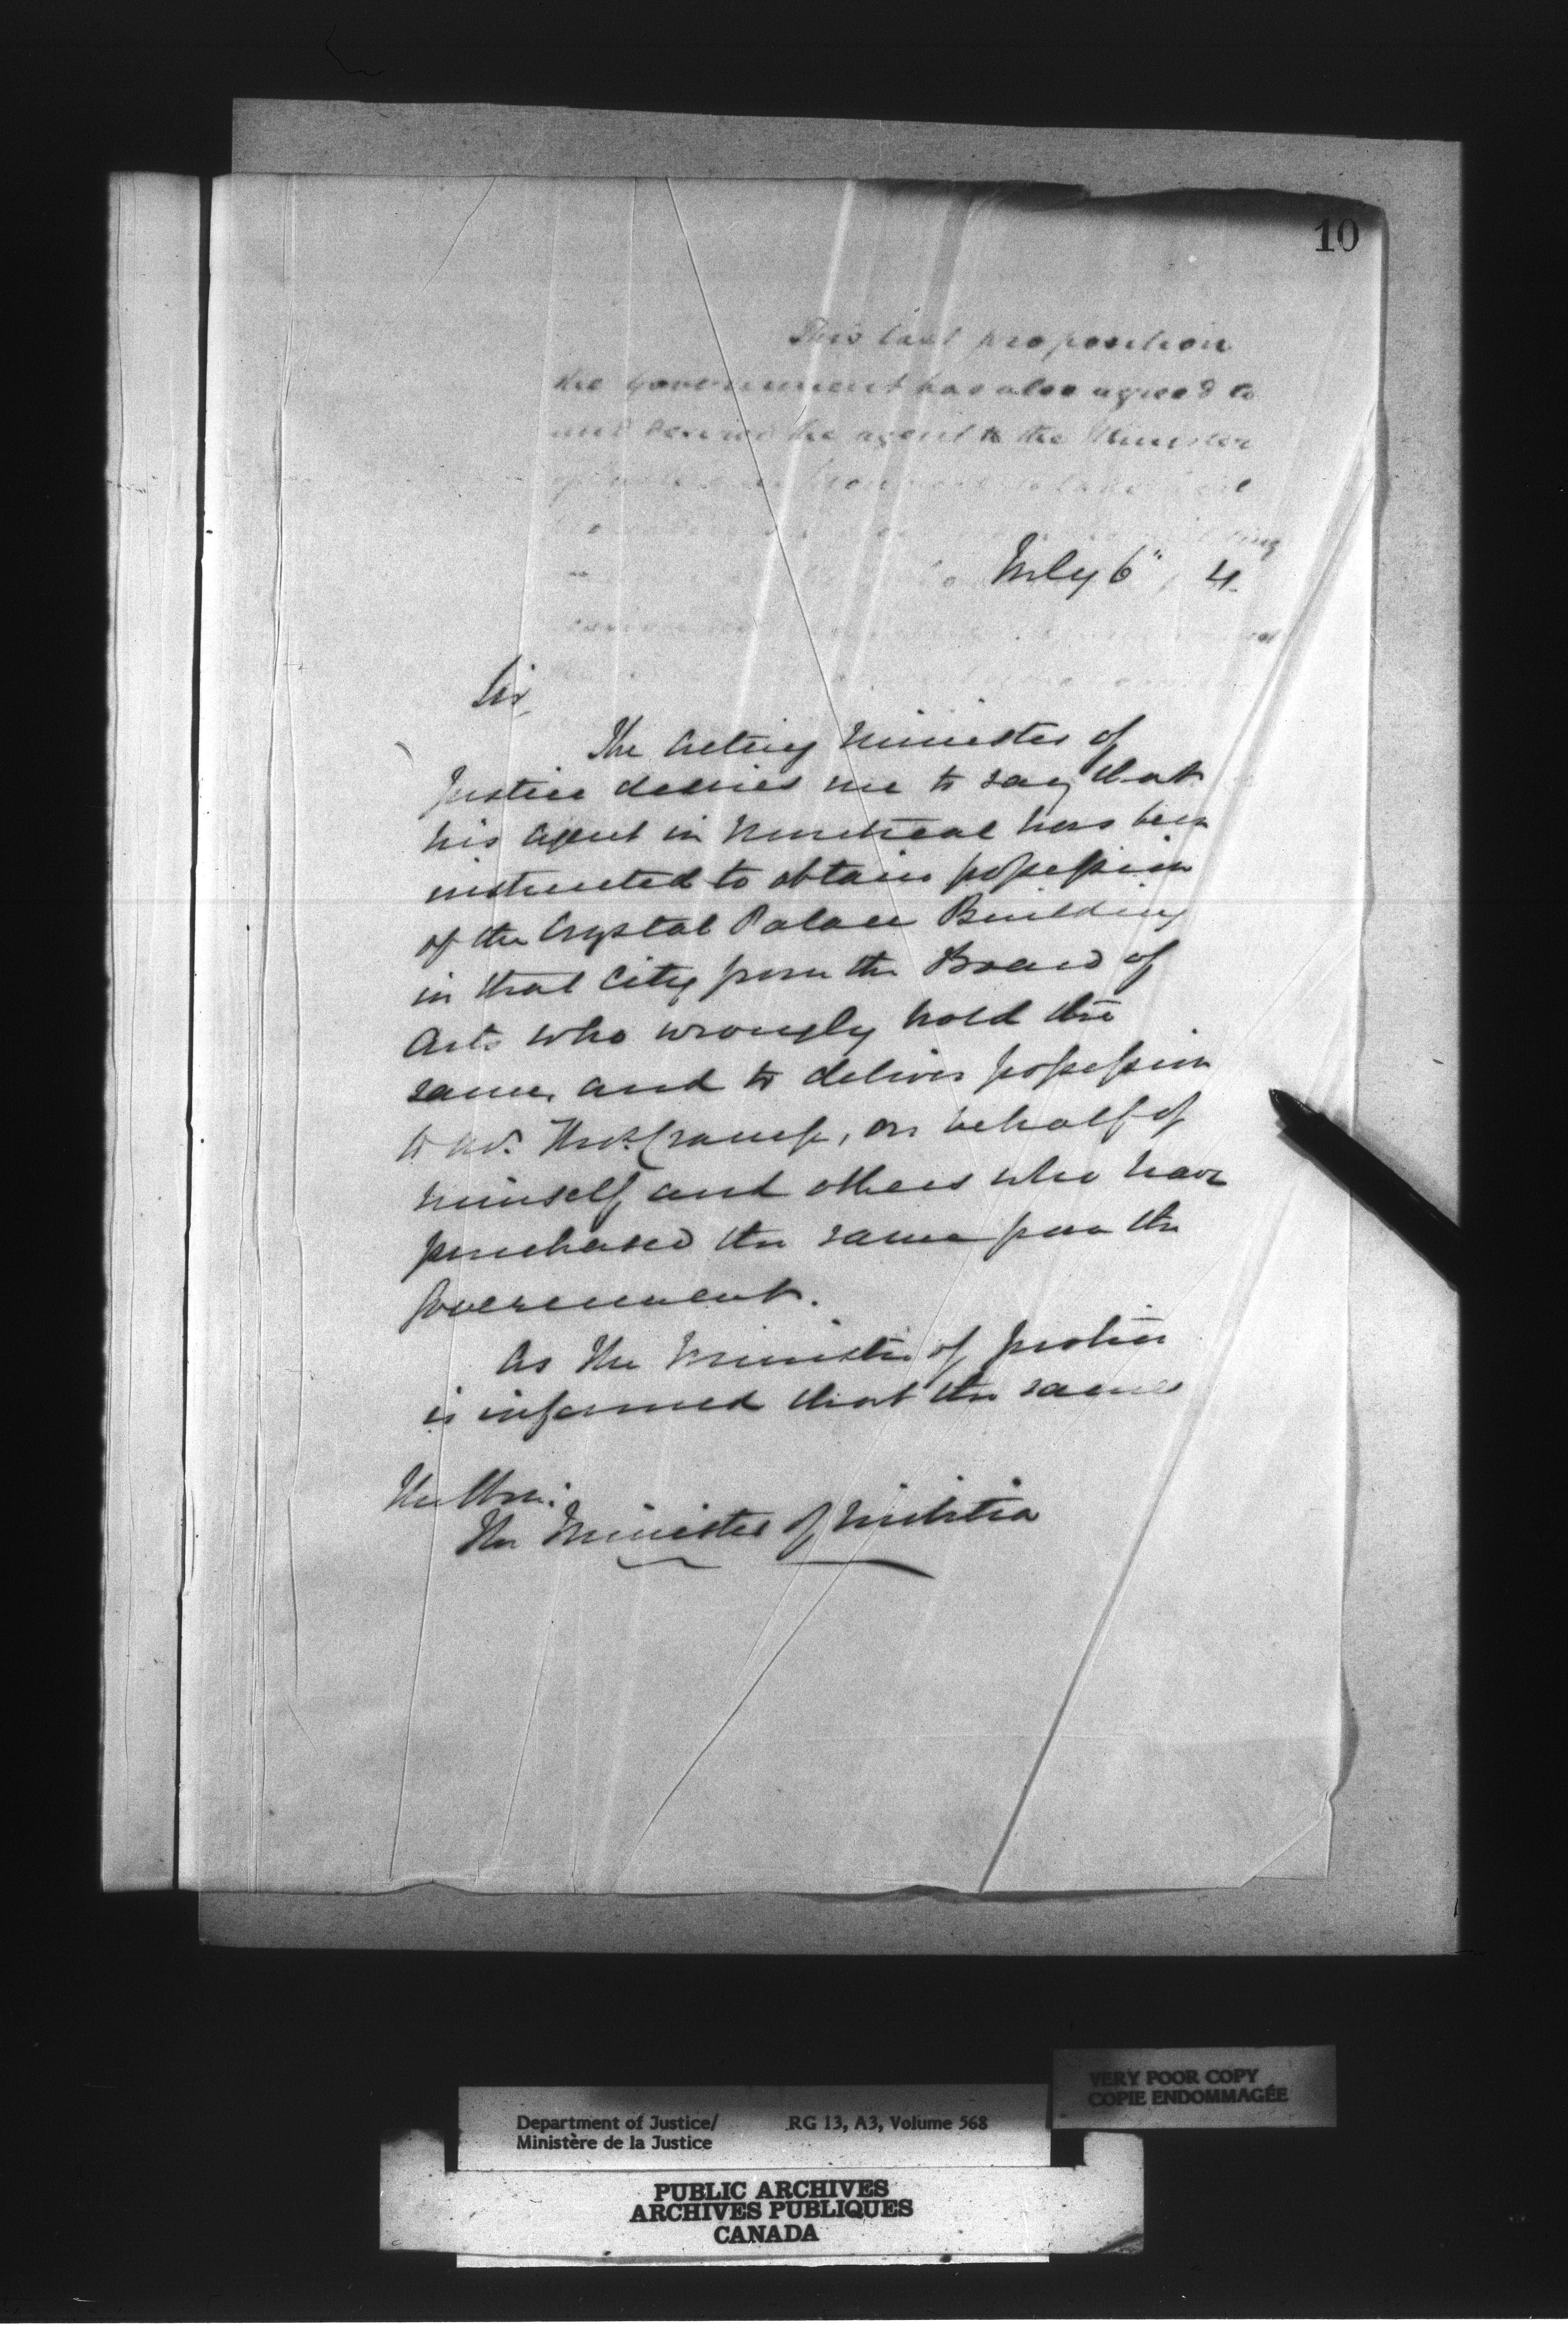 10
This last proposition
the Government has also agreed to
and desired the agent to the Minister
July 6", 4.
Sir,
The Acting Minister of
Justice desires me to say that
his Agent in Montreal has been
instructed to obtain possession
of the Crystal Palace Building
in that City from the Board of
Arts who wrongly hold the
same, and to deliver possession
to Mr. Thos. Cramp, on behalf of
himself and others who have
purchased the same from the
Government.
As the Minister of Justice
is informed that the same
The Hon:
The Minister of Militia
VERY POOR COPY
COPIE ENDOMMAGÉE
Department of Justice/ RG 13, A3, Volume 568
Ministère de la Justice
PUBLIC ARCHIVES
ARCHIVES PUBLIQUES
CANADA